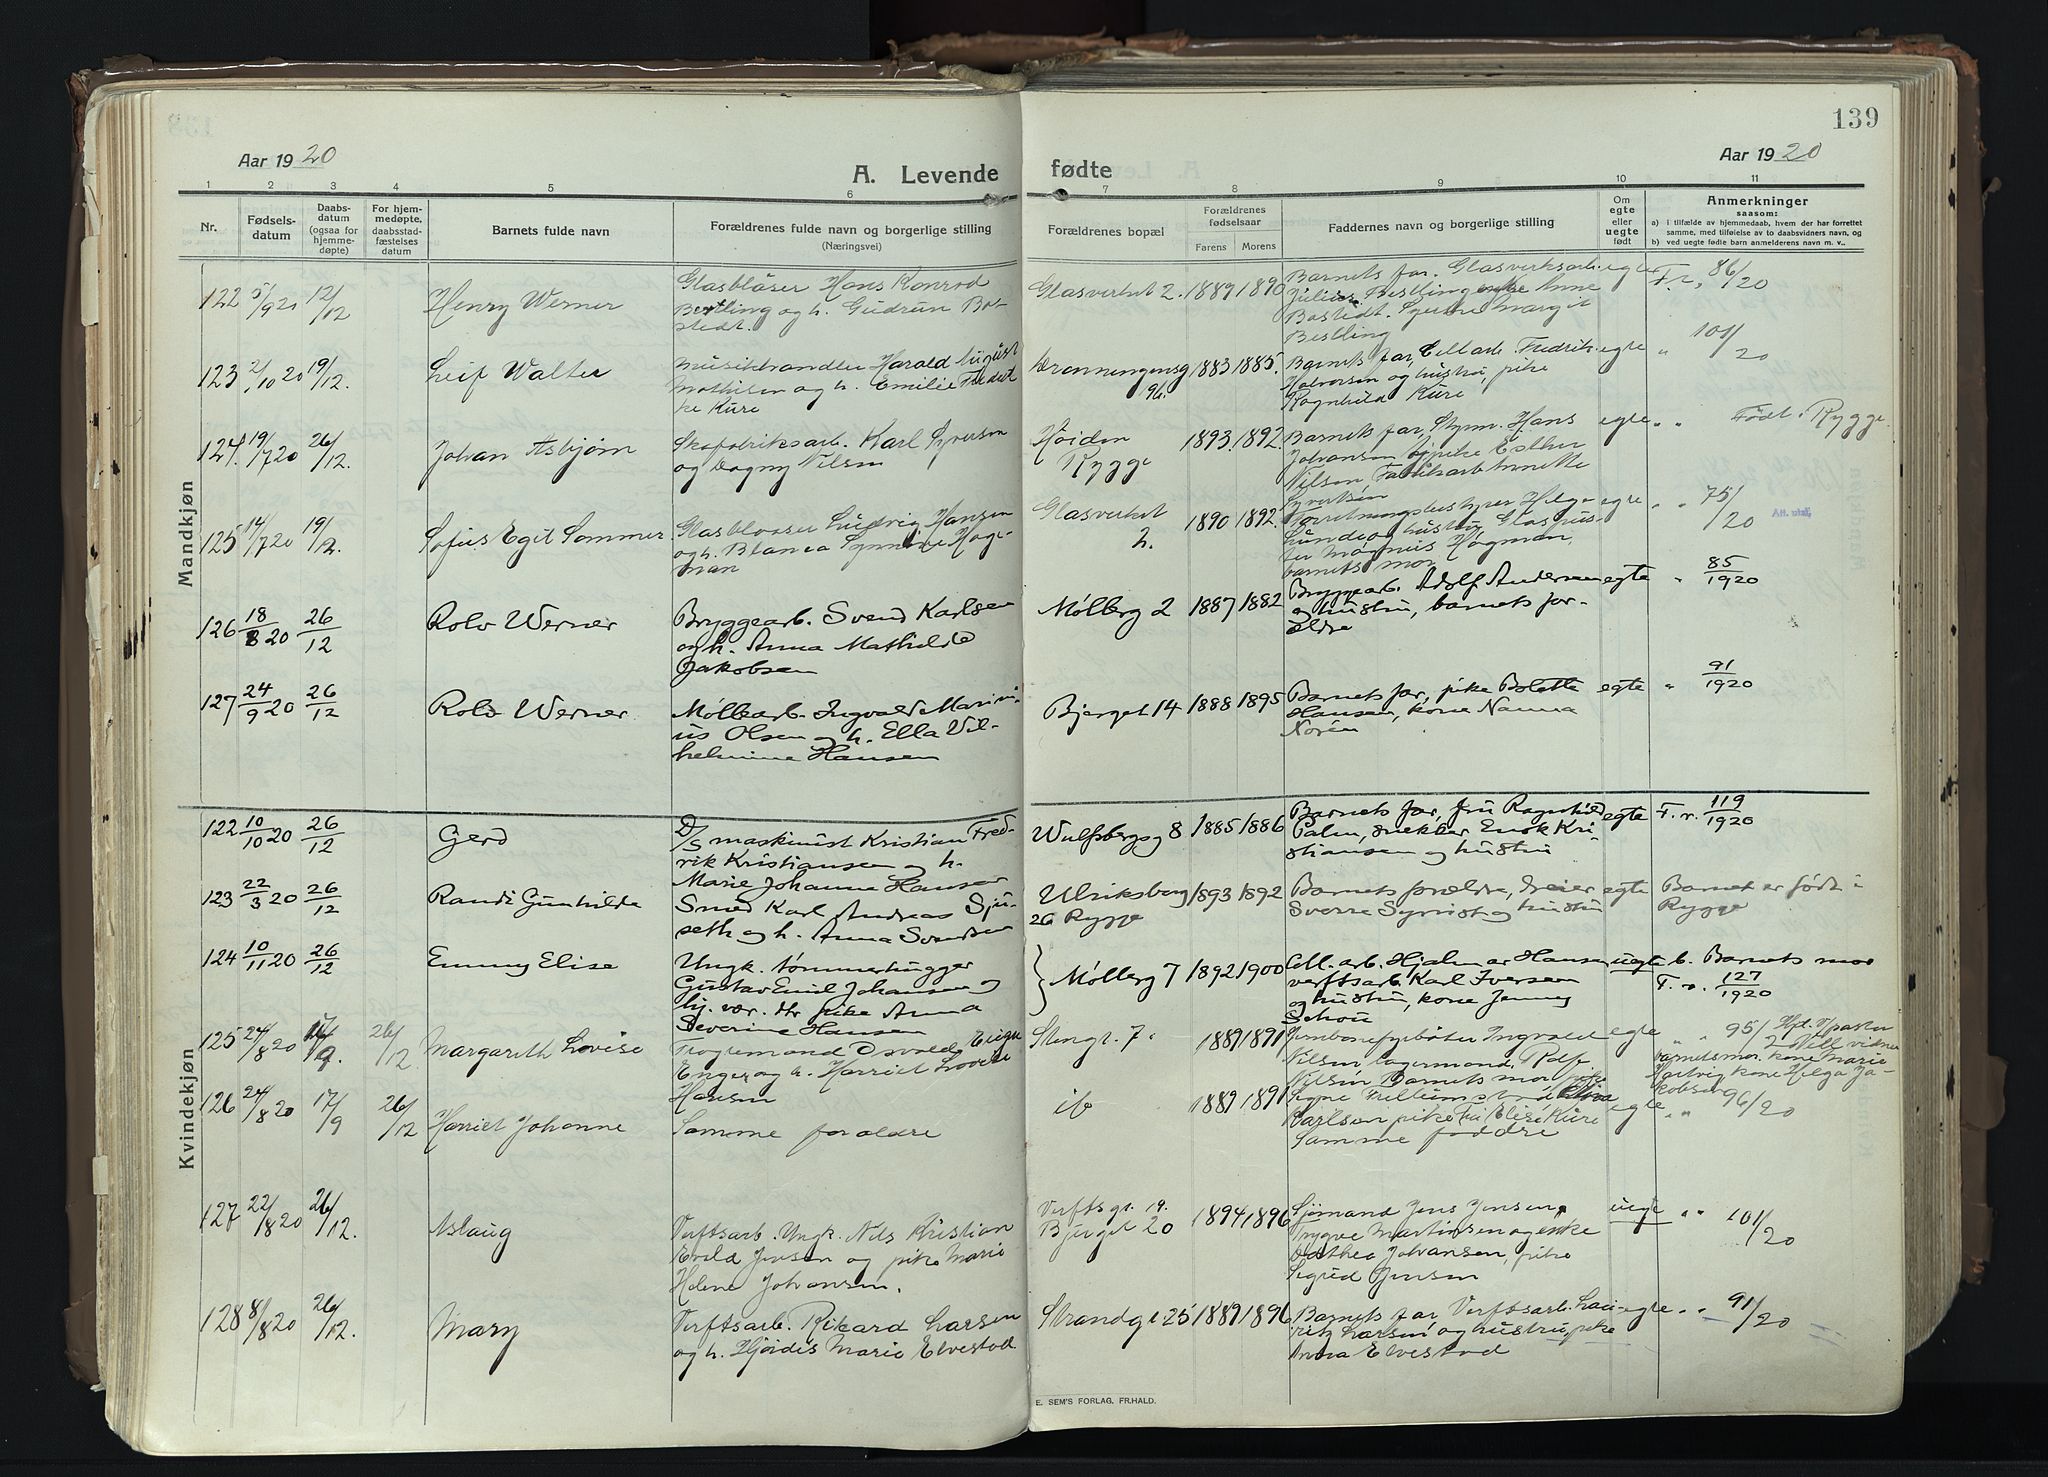 139
Aar 1920
A. Levende
fødte
Aar 1920
1 2 3 4 5 6 7 8 9 10 11
Nr.
Fødsels-
datum
Daabs-
datum
(ogsaa for
hjemme-
døpte)
For hjem-
medøpte,
daabsstad-
fæstelses
datum
Barnets fulde navn
Forældrenes fulde navn og borgerlige stilling
(Næringsvei)
Forældrenes bopæl
Forældrenes
fødselsaar
Farens Morens
Faddernes navn og borgerlige stilling
Om
egte
eller
uegte
født
Anmerkninger
saasom:
a) i tilfælde av hjemmedaab, hvem der har forrettet
samme, med tilføielse av to daabsvidners navn, og
b) ved uegte fødte barn anmelderens navn m. v..
Mandkjøn
122 5/9 20 12/12 Henry Werner
Glasblåser Hans Konrad
Bestling og h. Gudrun Bo-
stedt.
Glasverket 2. 1889 1890
Barnets far. Glasverksarb.
Julius Bestling enke Anne
Bostedt. Margit
Bestling
egte F.r. 86/20
123 2/10 20 19/12. Leif Walter
Musikhandler Harald August
Mathisen og h. Emilie Fredrik-
ke Kure
Dronningensg 1883 1885.
Barnets far, Cellarb. Fredrik
Halvorsen og hustru, pike
Ragnhild Kure
egte " 101/20
124. 19/7 20 26/12. Johan Asbjørn
Skofabriksarb. Karl Syversen
og Dagny Nilsen
Høiden
Rygge
1893. 1892.
Barnets far, Hans
Johansen pike Esther
Nilsen Fabrikarb. Annette
Syvertsen
egte " " Født i Rygge
125 14/7 20 19/12. Sofus Egil Sommer
Glasblaaser Ludvig Hansen
og h. Blanca Synnøve Hög-
man
Glasverket
2.
1890 1892.
Forretningsbestyrer Helge
Lunde og hustru, Glaspus-
ter Magnus Högman,
barnets mor
egte " " 75/20 Att. utst.
126 18/8 20 26/12 Rolv Werner
Bryggearb. Svend Karlsen
og h. Anna Mathilde
Jakobsen
Mølleberg 2 1887 1882
Bryggearb. Adolf Andersen
og hustru, barnets for-
ældre
egte " 85/1920
127 24/9 20 26/12 Rolv Werner
Møllearb. Ingvald Marin-
ius Olsen og h. Ella Vil-
helmine Hansen
Bjerget 14 1888 1895
Barnets far, pike Bolette
Hansen, kone Nanna
Norén
egte " 91/1920
Kvindekjøn
122 10/10 20 26/12 Gerd
D/S maskinist Kristian Fred-
rik Kristiansen og h.
Marie Johanne Hansen
Wulfsbergsg 8 1885 1886
Barnets far, fru Ragnhild
Palm, snekker Enok Kri-
stiansen og hustru
egte F. r. 119/1920
123 22/3 20 26/12 Randi Gunhilde
Smed Karl Andreas Sju-
seth og h. Anna Svendsen
Ulriksborg
26 Rygge
1893 1892
Barnets forældre, dreier
Sverre Syrrist og hustru
egte Barnet er født i
Rygge
124 10/11 20 26/12 Emmy Elise
Ungk. tømmerhugger
Gustav Emil Johansen og
hj. vær. dtr pike Anna
Severine Hansen
Mølleberg 7 1892 1900
Cell. arb. Hjalmar Hansen
verftsarb. Karl Iversen
og hustru, kone Jenny
Schou
uegte b. Barnets mor
F. r. 127/1920
125 24/8 20 17/9. 26/12 Margarith Lovise
Trygdemand Osvald
Enger og h. Harriet Lovise
Hansen
Stengt. 7. 1889 1891
Jernbanefyrbøter Ingvald
Nilsen lagermand Rolf
Nilsen Barnets mor
egte " " 95/
barnets mor. kone Marie
Hartvig kone Helga Ja-
kobsen
126 24/8 20 17/9 26/12 Harriet Johanne
Samme foraldre
ib 1889 1891
Signe
Karlsen pike Elise Kure
Samme faddre
egte " " 96/20
127 22/8 20 26/12. Aslaug
Verftsarb. Ungk. Nils Kristian
Jensen og pike Marie
Helene Johansen.
Verftsgt. 19.
Bjerget 20
1894 1896
Sjømand Jens Jensen,
Yngve Martinsen og enke
Dorthea Johansen, pike
Sigrid Jensen
uegte " " 101/20
128 8/8 20 26/12. Mary
Verftsarb. Rikard Larsen
og h. Hjördis Marie Elvestad
Strandg. 25 1889 1896
Barnets far Verftsarb. Lau-
ritz Larsen og hustru, pike
Anna Elvestad
egte " " 91/20
E. SEM'S FORLAG, FR.HALD.